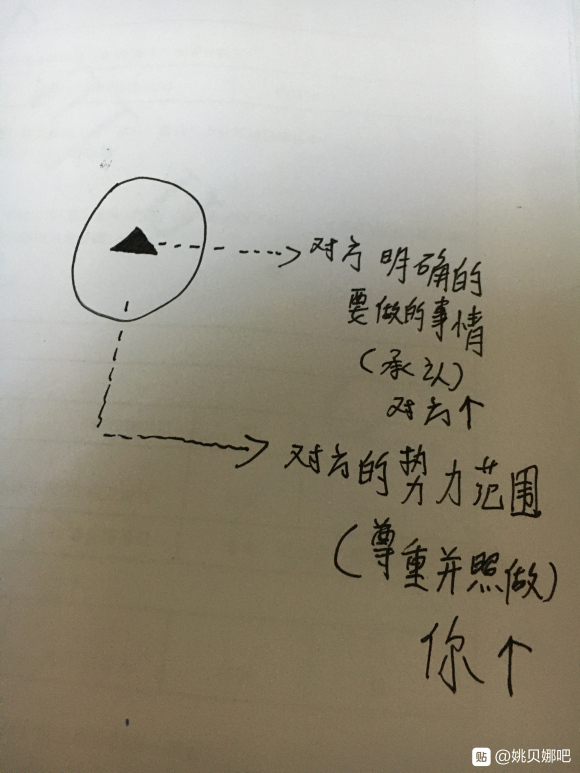 对方明确的
要做的事情
(承认)
对方个
对方的势力范围
(尊重并照做)
你个
贴 @姚贝娜吧